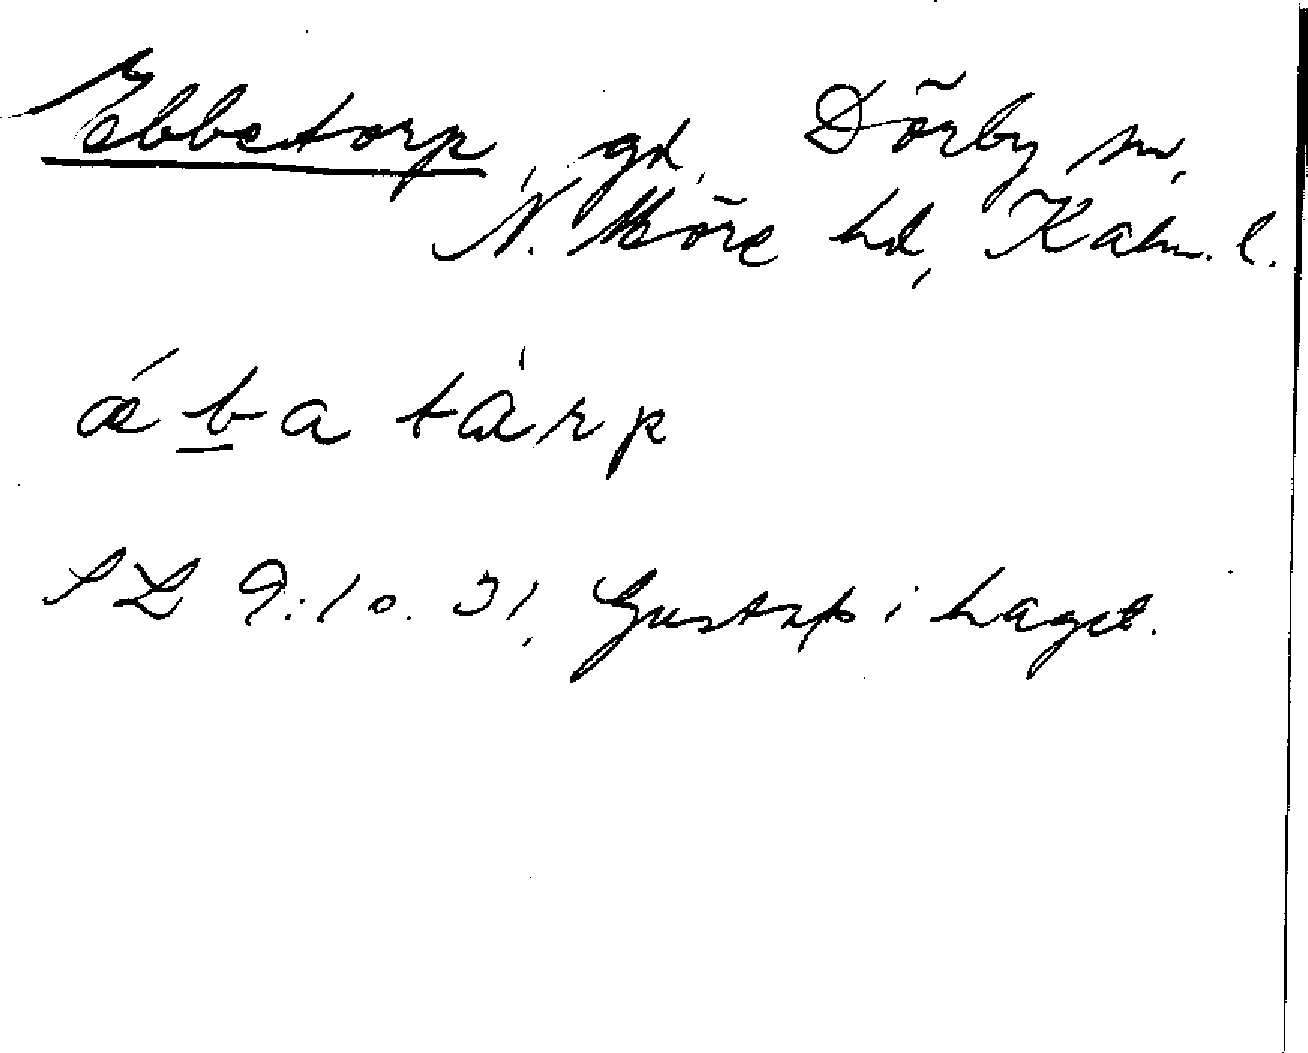 Ebbetorp, gd, Dörby sn,
N. Möre hd, Kalm. l.
ǽba tàrp
SL 9.10.31, Gustaf i Laget.